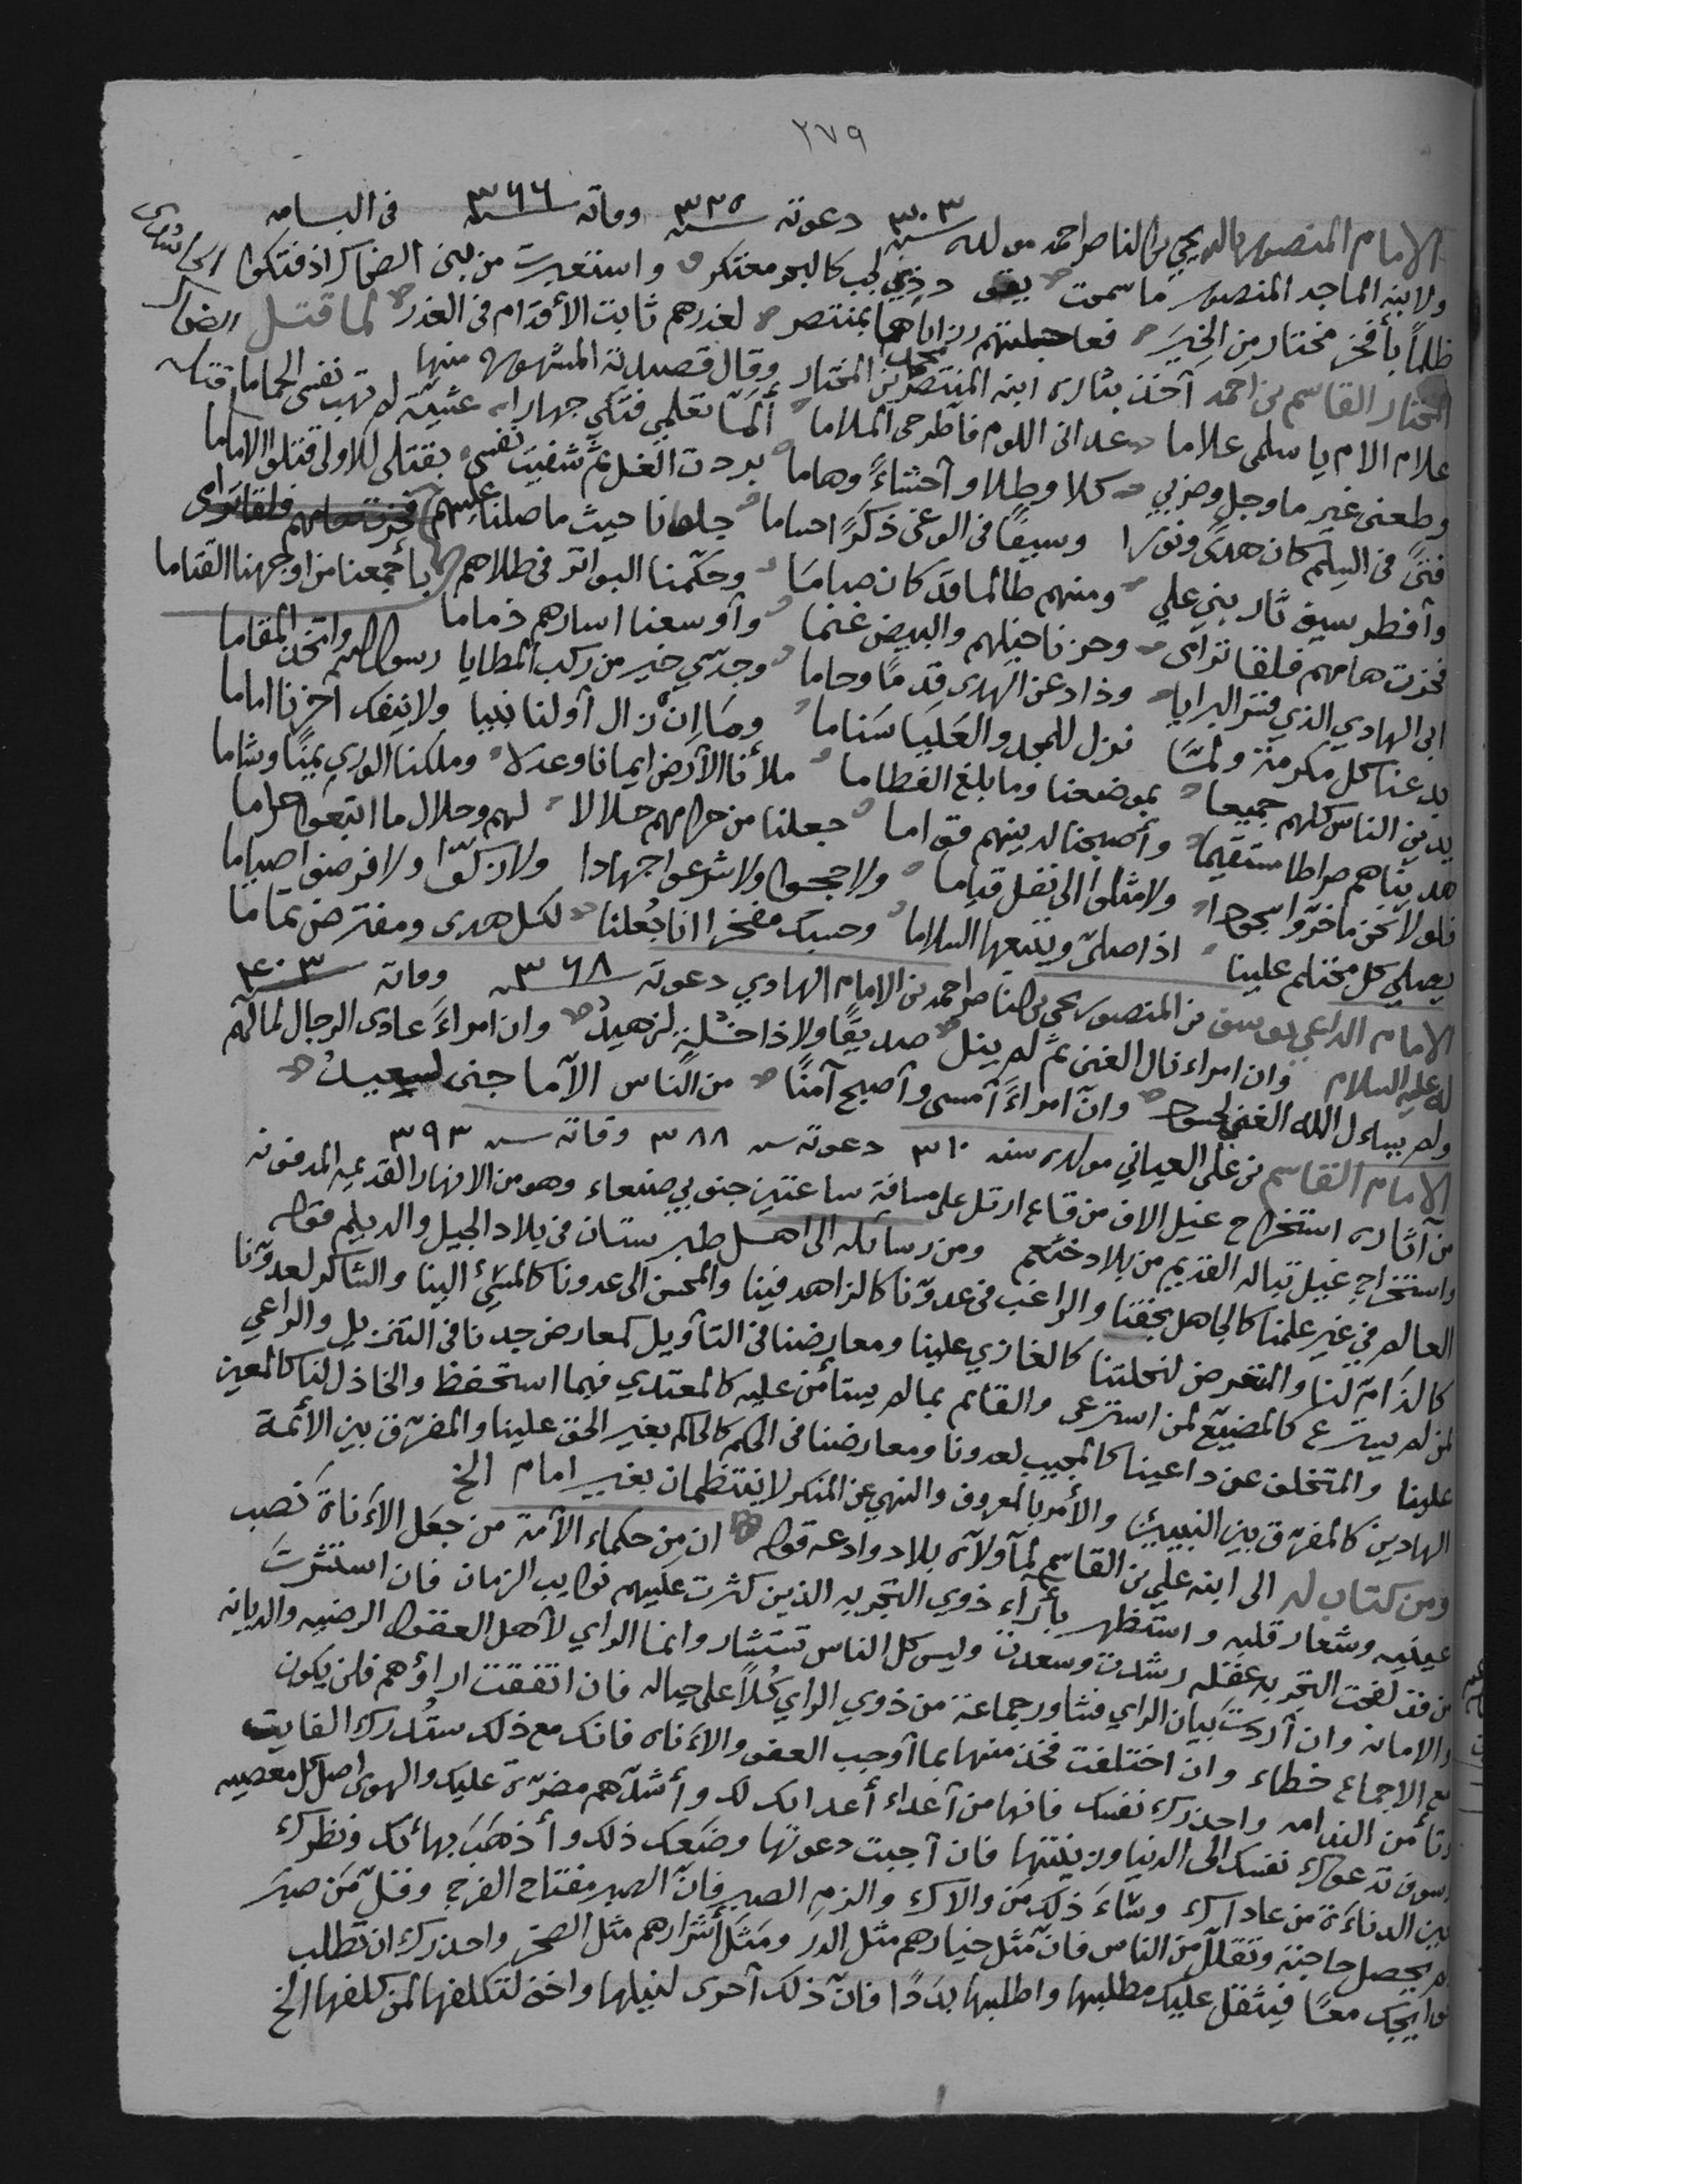 ٢٧٩
الامام المنصور بالله يحيى بن الناصر احمد مولده سنة ٣٠٣ دعوته سنة ٣٢٥ وفاته سنة ٣٦٦ في البسامه
ولابنه الماجد المنصور ما سمحت وذي لجب كالبحر معتكر واستعبرت من بني الضحاك اذ فتكوا
ظلماً بأفخر مختار من الخِيَر فعاجلتهم رزاياها بمنتصر لغدرهم ثابت الأقدام في الغدر لما قتل الضحاك
المختار القاسم بن احمد أخذ بثاره ابنه المنتصر محمد بن المختار وقال قصيدته المشهوره منها
علام الام يا سلمى علاما عداني اللوم فاطرحي الملاما ألمّا تعلمي فتكي جهارا عشية لم تهب نفسي الحماما
وطعني غير ما وجل وضربي كلا وطلا وأحشاءً وهاما بردت الغل ثم شفيت نفسي بقتلي للاولى قتلوا الاماما
فتىً في السلم كان هدىً ونورا وسيفًا في الوغى ذكرًا حساما
وأفطر سيف ثار بني علي ومنهم طالما قد كان صاما وحكّمنا البواتر في طلاهم بأجمعنا من اوجهنا القتاما
فخرت هامهم فلقا ترامى وحزنا خيلهم والبيض غنما وأوسعنا اسارهم ذماما
ابي الهادي الذي فتر البرايا وذاد عن الهدى قدمًا وحاما وجدي خير من ركب المطايا رسول الله واتخذ المقاما
بدعنا كل مكرمة ولمّا نزل للمجد والعليا سناما وما إن زال أولنا نبيا ولا ينفك آخرنا اماما
يدين الناس كلهم جميعا بموضعنا وما بلغ الفطاما ملأنا الأرض ايمانا وعدلا وملكنا الورى يمنًا وشاما
هديناهم صراطا مستقيما وأصبحنا لدينهم قواما جعلنا من حرامهم حلالا لهم وحلال ما اتبعوا حراما
فلولا نحن ما خرّوا سجودا ولا مثلوا الى نفل قياما ولا حجوا ولا شرعوا جهادا ولا زكّوا ولا فرضوا صياما
يصلي كل محتلم علينا اذا صلى ويتبعها السلاما وحسبك مفخرا انا جُعلنا لكل هدى ومفترض تماما
الامام الداعي يوسف بن المنصور يحيى بن الناصر احمد بن الامام الهادي دعوته سنة ٣٦٨ وفاته سنة ٤٠٣
له عليه السلام وان امراء نال الغنى ثم لم ينل صديقًا ولا ذا خلة لزهيد وان امراءً عادى الرجال لماله
ولم يسأل الله الغنى لحسود وانّ امراءً أمسى وأصبح آمنًا من الناس الا ما جنى لسعيد
الامام القاسم بن علي العياني مولده سنه ٣١٠ دعوته سنه ٣٨٨ وفاته سنه ٣٩٣
من آثاره استخراج غيل الاف من قاع ارتل على مسافة ساعتين جنوبي صنعاء وهو من الانهار القديمه المدفونه
واستخراج غيل تباله القديم من بلاد خثعم ومن رسائله الى اهل طبرستان في بلاد الجيل والديلم قوله
العالم في غير علمنا كالجاهل بحقنا والراغب في عدوّنا كالزاهد فينا والمحسن الى عدونا كالمسيء الينا والشاكر لعدوّنا
كالذامّ لنا والمتعرض لنحلتنا كالغازي علينا ومعارضنا في التأويل كمعارض جدنا في التنزيل والراعي
لمن لم يسترع كالمضيّع لمن استرعى والقائم بما لم يستأمن عليه كالمعتدي فيما استحفظ والخاذل لنا كالمعين
علينا والمتخلف عن داعينا كالمجيب لعدونا ومعارضنا في الحكم كالحاكم بغير الحق علينا والمفرق بين الأئمة
الهادين كالمفرّق بين النبيين والأمر بالمعروف والنهي عن المنكر لا ينتظمان بغير امام الخ
ومن كتاب له الى ابنه علي بن القاسم لما ولاه بلاد وادعه قوله ان من حكماء الأمة من جعل الأناة نصب
عينيه وشعار قلبه واستظهر بأراء ذوي التجربه الذين كثرت عليهم نوايب الزمان فان استشرت
من قد لقحت التجربه عقله رشدت وسعدت وليس كل الناس تستشار وانما الراي لأهل العقول الرضيه والديانه
والامانه وان أردت بيان الراي فشاور جماعة من ذوي الراي كُلاً على حياله فان اتفقت اراؤهم فلن يكون
مع الاجماع خطاء وان اختلفت فخذ منها بما أوجب العقل والأناه فانك مع ذلك ستُدرك الفايت
وتأمن الندامه واحذرك نفسك فانها من أعداء أعدائك لك وأشدّهم مضرّة عليك والهوى اصل كل معصيه
وسوف تدعوك نفسك الى الدنيا وزينتها فان أجبت دعوتها وضعك ذلك وأذهب بهائك ونظرك
بعين الدناءة من عاداك وشاءَ ذلك من والاك والزم الصبر فانّ الصبر مفتاح الفرج وقلّ من صبر
لم يحصل حاجته وتقلّل من الناس فانّ مَثل خيارهم مثل الدر ومَثل أشرارهم مثل الصخر واحذرك ان تطلب
حوايجك معًا فيثقل عليك مطلبها واطلبها بددًا فانّ ذلك أحرى لنيلها واخف لتكلفها لمن كلفها الخ